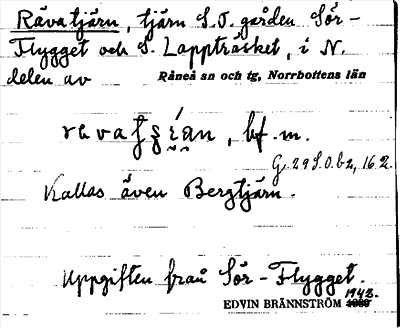 Rävatjärn, tjärn S.O. gården Sör-
Flygget och S. Lappträsket, i N.
delen av Råneå sn och tg, Norrbottens län
bf. m.
G. 29 S.O. bz, 16 2.
Kallas även Bergtjärn.
Uppgiften från Sör-Flygget.
1943.
EDVIN BRÄNNSTRÖM